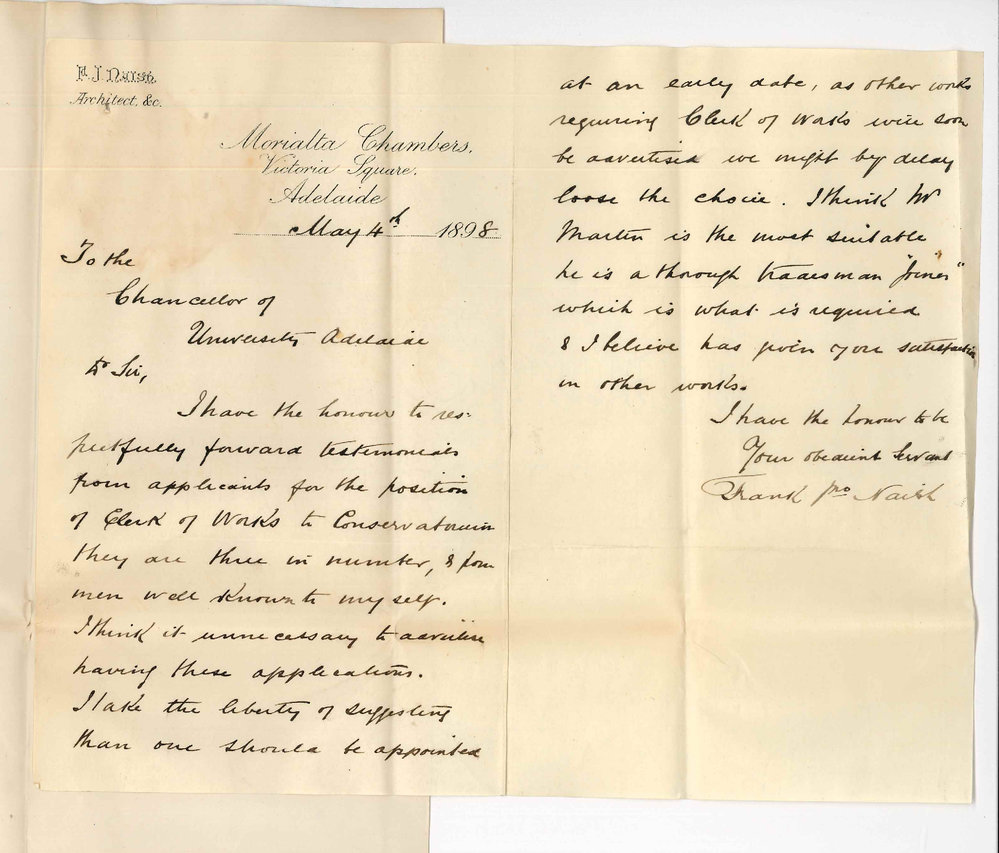 F. J. Naish,
Architect, &c.
Morialta Chambers,
Victoria Square,
Adelaide
May 4th 1898
To the
Chancellor of
University Adelaide
Dr Sir,
I have the honour to res-
pectfully forward testimonials
from applicants for the position
of Clerk of Works to Conservatorium
they are three in number, & from
men well known to myself.
I think it unnecessary to advertise
having these applications.
I take the liberty of suggesting
than one should be appointed
at an early date, as other works
requiring Clerk of Works will soon
be advertised we might by delay
loose the choice. I think Mr
Martin is the most suitable
he is a through tradesman "Joiner"
which is what is required
& I believe has given you satisfaction
in other works.
I have the honour to be
Your obedient Servant
Frank Jno Naish